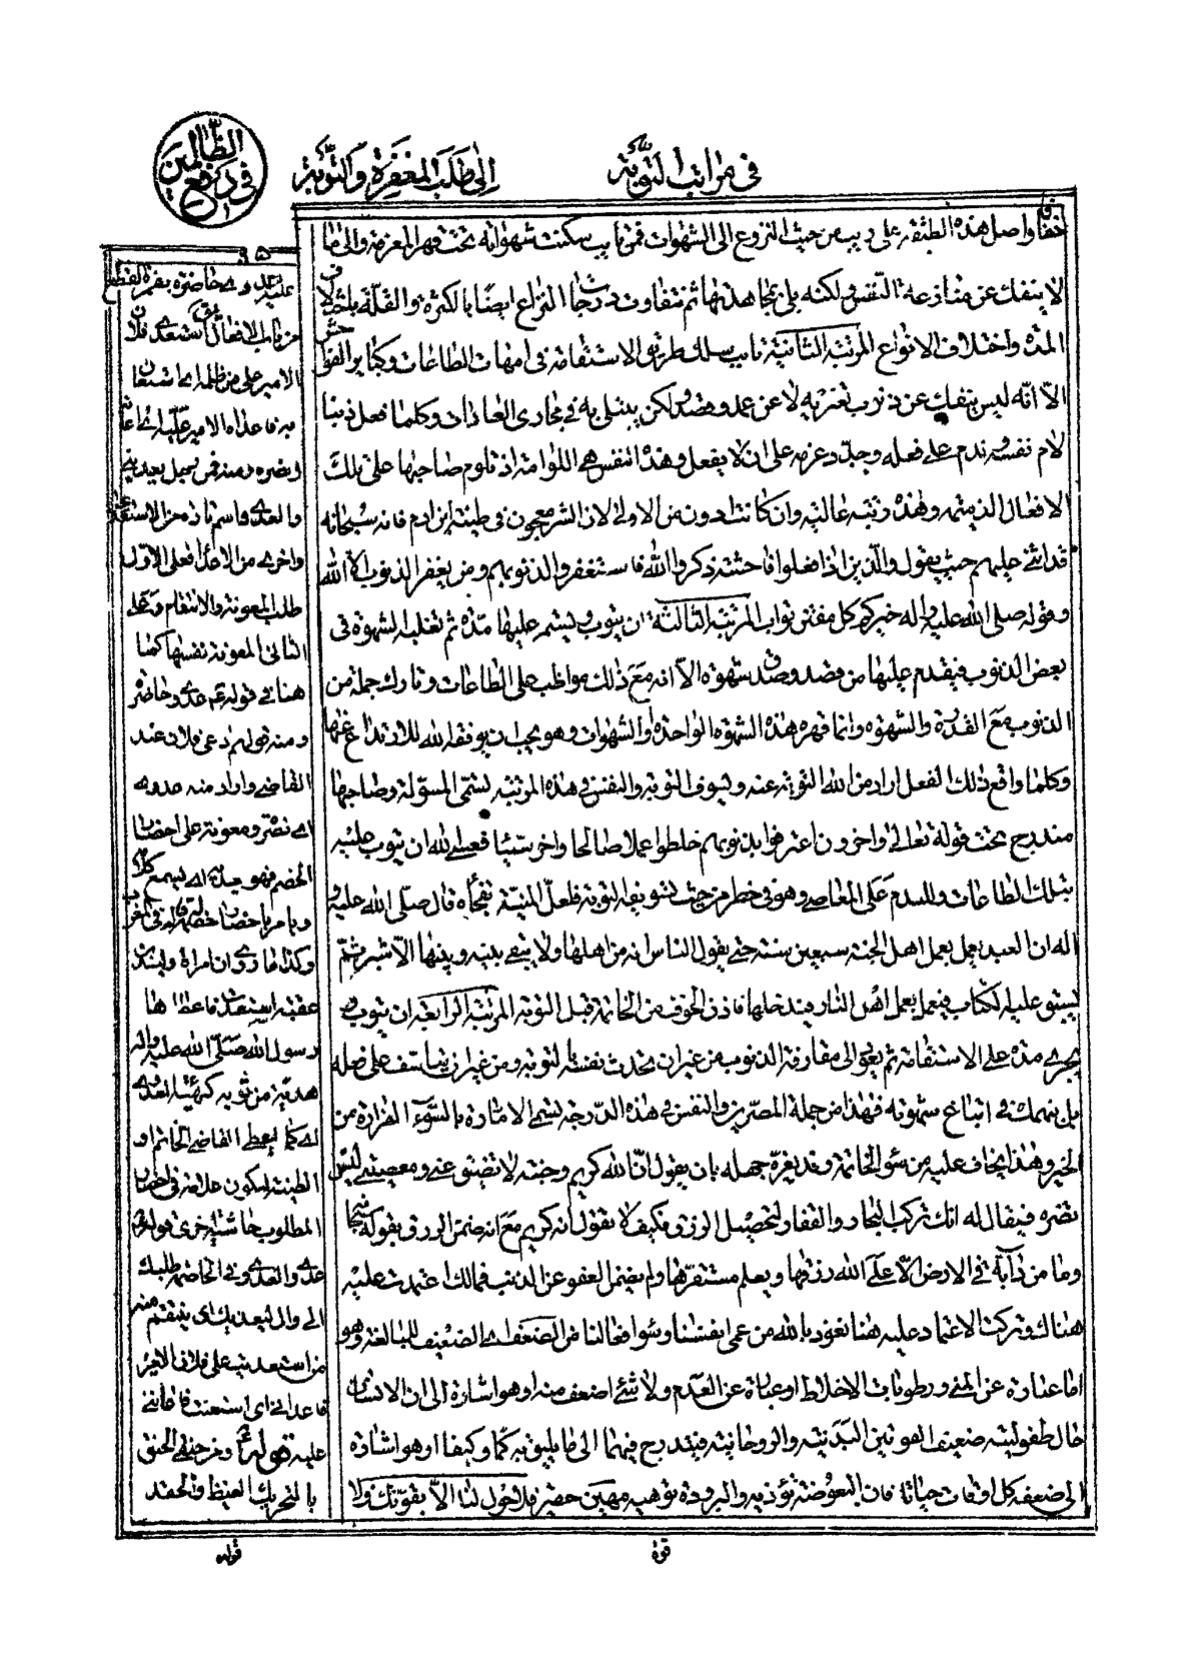 في مراتب التوبة
إلى طلب المغفرة والتوبة
في دفع الظالمين
واصل هذه الطبقة على رتب من حيث النزوع الى الشهوات فمن تايب سكنت شهواته تحت قهر المعرفة والى ما
لا ينفك عن منازعة النفس ولكنه ملي بمجاهدتها ثم تتفاوت درجات النزاع ايضا بالكثرة والقلة باختلاف
المدة واختلاف الانواع المرتبة الثانية تايب سلك طريق الاستقامة في امهات الطاعات وكباير الفواحش
الا انه ليس ينفك عن ذنوب تعتريه لا عن عمد وقصد ولكن يبتلى به في مجاري العادات وكلما فعل ذنبا
لام نفسه وندم على فعله وجدد عزمه على ان لا يفعل وهذه النفس هي اللوامة اذ تلوم صاحبها على تلك
الافعال الذميمة وهذه رتبة عالية وان كانت دون من الاولى لان الشر معجون في طينة ابن ادم فانه سبحانه
قد اثنى عليهم حيث يقول والذين اذا فعلوا فاحشة ذكروا الله فاستغفروا لذنوبهم ومن يغفر الذنوب الا الله
وقوله صلى الله عليه واله خيركم كل مفتن تواب المرتبة الثالثة ان يتوب ويستمر عليها مدة ثم تغلبه الشهوة في
بعض الذنوب فيقدم عليها من قصد وصدق شهوة الا انه مع ذلك مواظب على الطاعات وتارك جملة من
الذنوب مع القدرة والشهوة وانما قهره هذه الشهوة الواحدة والشهوات وهو يحب ان يوفقه الله للارتداع عنها
وكلما واقع ذلك الفعل اراد من الله التوبة عنه ويسوف التوبة والنفس في هذه المرتبة تسمى المسولة وصاحبها
مندرج تحت قوله تعالى واخرون اعترفوا بذنوبهم خلطوا عملا صالحا واخر سيئا فعسى الله ان يتوب عليه
بتلك الطاعات والندم على المعاصي وهو في خطر من حيث تسويفه التوبة فلعل المنية تفجأه قال صلى الله عليه و
اله ان العبد يعمل بعمل اهل الجنة سبعين سنة حتى يقول الناس انه من اهلها ولا يبقى بينه وبينها الا شبر ثم
يسبق عليه الكتاب فيعمل بعمل اهل النار فيدخلها فاذن الخوف من الخاتمة قبل التوبة المرتبة الرابعة ان يتوب و
يجري مدة على الاستقامة ثم يعود الى مقارفة الذنوب من غير ان يحدث نفسه بالتوبة ومن غير ان يتاسف على فعله
بل ينهمك في اتباع شهوته فهذا من جملة المصرين والنفس في هذه الدرجة تسمى الامارة بالسوء الفرارة من
الخير وهذا يخاف عليه من سوء الخاتمة وقد يغره جهله بان يقول ان الله كريم وجنته لا تضيق عني ومعصيتي ليس
تضره فيقال له انك تركب البحار والقفار لتحصيل الرزق فكيف لا تقول انه كريم مع انه ضمن الرزق بقوله سبحانه
وما من دابة في الارض الا على الله رزقها ويعلم مستقرها ولم يضمن العفو عن الذنب فمالك اعتمدت عليه
هنالك وتركت الاعتماد عليه هنا نعوذ بالله من عمى انفسنا وسوء افعالنا من الضعف اي الضعيف للمبالغة وهو
اما عبارة عن المني ورطوبات الاخلاط او عبارة عن العدم ولا شئ اضعف منه او هو اشارة الى ان الانسان
حال طفوليته ضعيف القوتين البدنية والروحانية فيتدرج فيهما الى ما يليق به كما وكيفا او هو اشارة
الى ضعفه كل اوقات حياته فان البعوضة تؤذيه والبرودة توهيه مهين حقير فلا حول لنا الا بقوتك ولا
قوة
من باب الافعال استعدى فلان
الامير على من ظلمه اي استعان
به فاعداه الامير عليه اي اعانه
ونصره ومنه فمن رجل يعديني
واخرى من الاعداء فعلى الاول
طلب المعونة والانتقام وعلى
الثاني المعونة نفسها كما
هنا في قوله ثم عدوي حاضرة
ومنه قولهم ادعى فلان عند
القاضي واراد منه عدوى
اي نصر ومعونة على احضار
الخصم فهو يعديه اي يسمع كلامه
ويامر باحضار خصمه كذا في المغرب
وكذا ما روي ان امراة وليد بن
عقبة استعدت فاعطاها
رسول الله صلى الله عليه واله
هدبة من ثوبه كهيئة العدوى
اي كما يعطي القاضي الخاتم او
الطينة ليكون علامة في احضار
المطلوب حاشية اخرى قوله
عدوى والعدوى في الحاضرة طلبك
الى وال ليعديك اي ينتقم منه
من استعديت على فلان الامير
فاعداني اي استعنت فاعانني
عليه قوله ومن حنقي الحنق
بالتحريك الغيظ والحقد
قوله